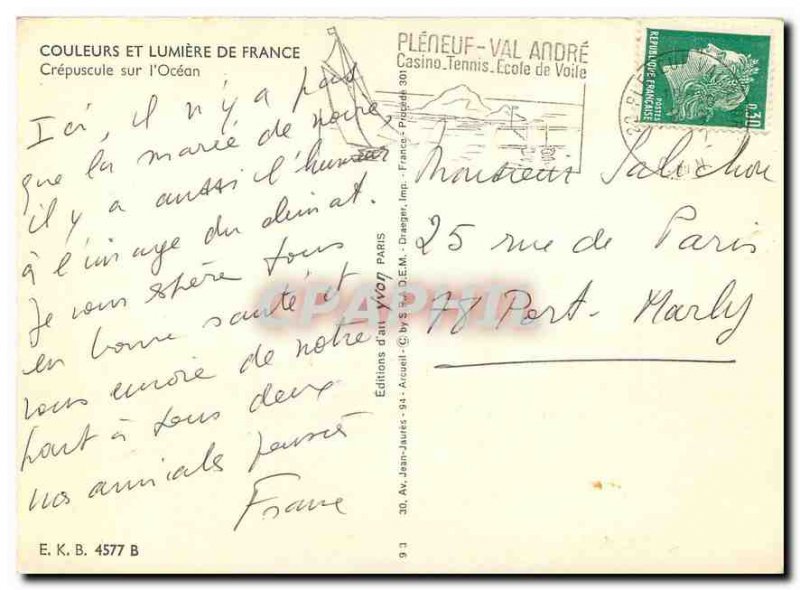 COULEURS ET LUMIÈRE DE FRANCE
Crépuscule sur l'Océan
Ici, il n'y a pas
que la marée de noire,
il y a aussi l'humeur
à l'image du climat.
Je vous espère tous
en bonne santé et
vous envoie de notre
part à tous deux
nos amicales pensées
France
E. K. B. 4577 B
PLÉNEUF-VAL ANDRÉ
Casino_Tennis_Ecole de Voile
REPUBLIQUE FRANÇAISE
POSTES
0,30
Monsieur Salichon
25 rue de Paris
78 Port-Marly
Editions d'art YVON PARIS
30, Av. Jean-Jaurès - 94 - Arcueil - © by S.P.A.D.E.M. - Draeger, Imp. - France - Procédé 301
CPAPHIL